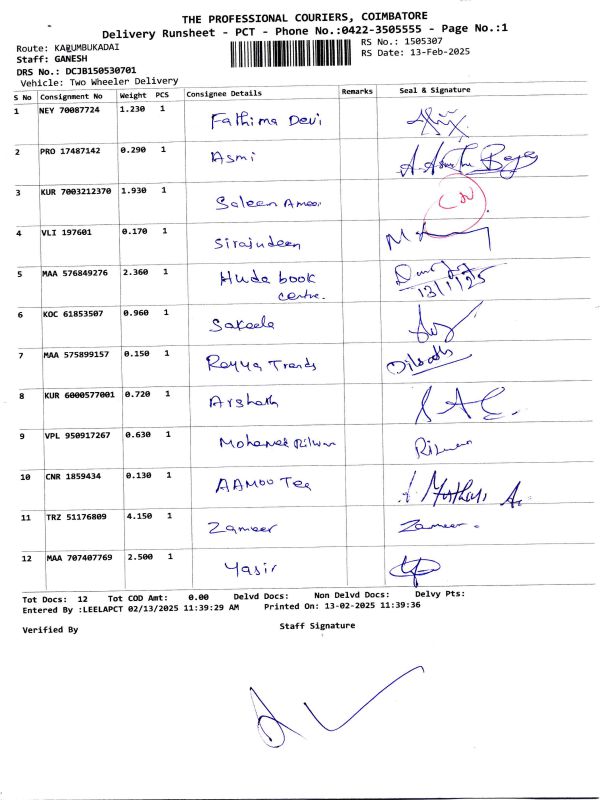 THE PROFESSIONAL COURIERS, COIMBATORE
Delivery Runsheet - PCT - Phone No.:0422-3505555 - Page No.:1
Route: KARUMBUKADAI
RS No.: 1505307
Staff: GANESH
RS Date: 13-Feb-2025
DRS No.: DCJB150530701
Vehicle: Two Wheeler Delivery
S No Consignment No Weight PCS Consignee Details Remarks Seal & Signature
1 NEY 70087724 1.230 1 Fathima Devi
2 PRO 17487142 0.290 1 Asmi
3 KUR 7003212370 1.930 1 Saleen Ameer
4 VLI 197601 0.170 1 Sirajudeen
5 MAA 576849276 2.360 1 Huda book
centre. 13/1/25
6 KOC 61853507 0.960 1 Sakeela
7 MAA 575899157 0.150 1 Reyya Trends
8 KUR 6000577001 0.720 1 Arshath
9 VPL 950917267 0.630 1 Mohamed Rilwan Rilwan
10 CNR 1859434 0.130 1 AAMOU Tea
11 TRZ 51176809 4.150 1 Zameer Zameer.
12 MAA 707407769 2.500 1 Yasir
Tot Docs: 12 Tot COD Amt: 0.00 Delvd Docs: Non Delvd Docs: Delvy Pts:
Entered By :LEELAPCT 02/13/2025 11:39:29 AM Printed On: 13-02-2025 11:39:36
Verified By Staff Signature